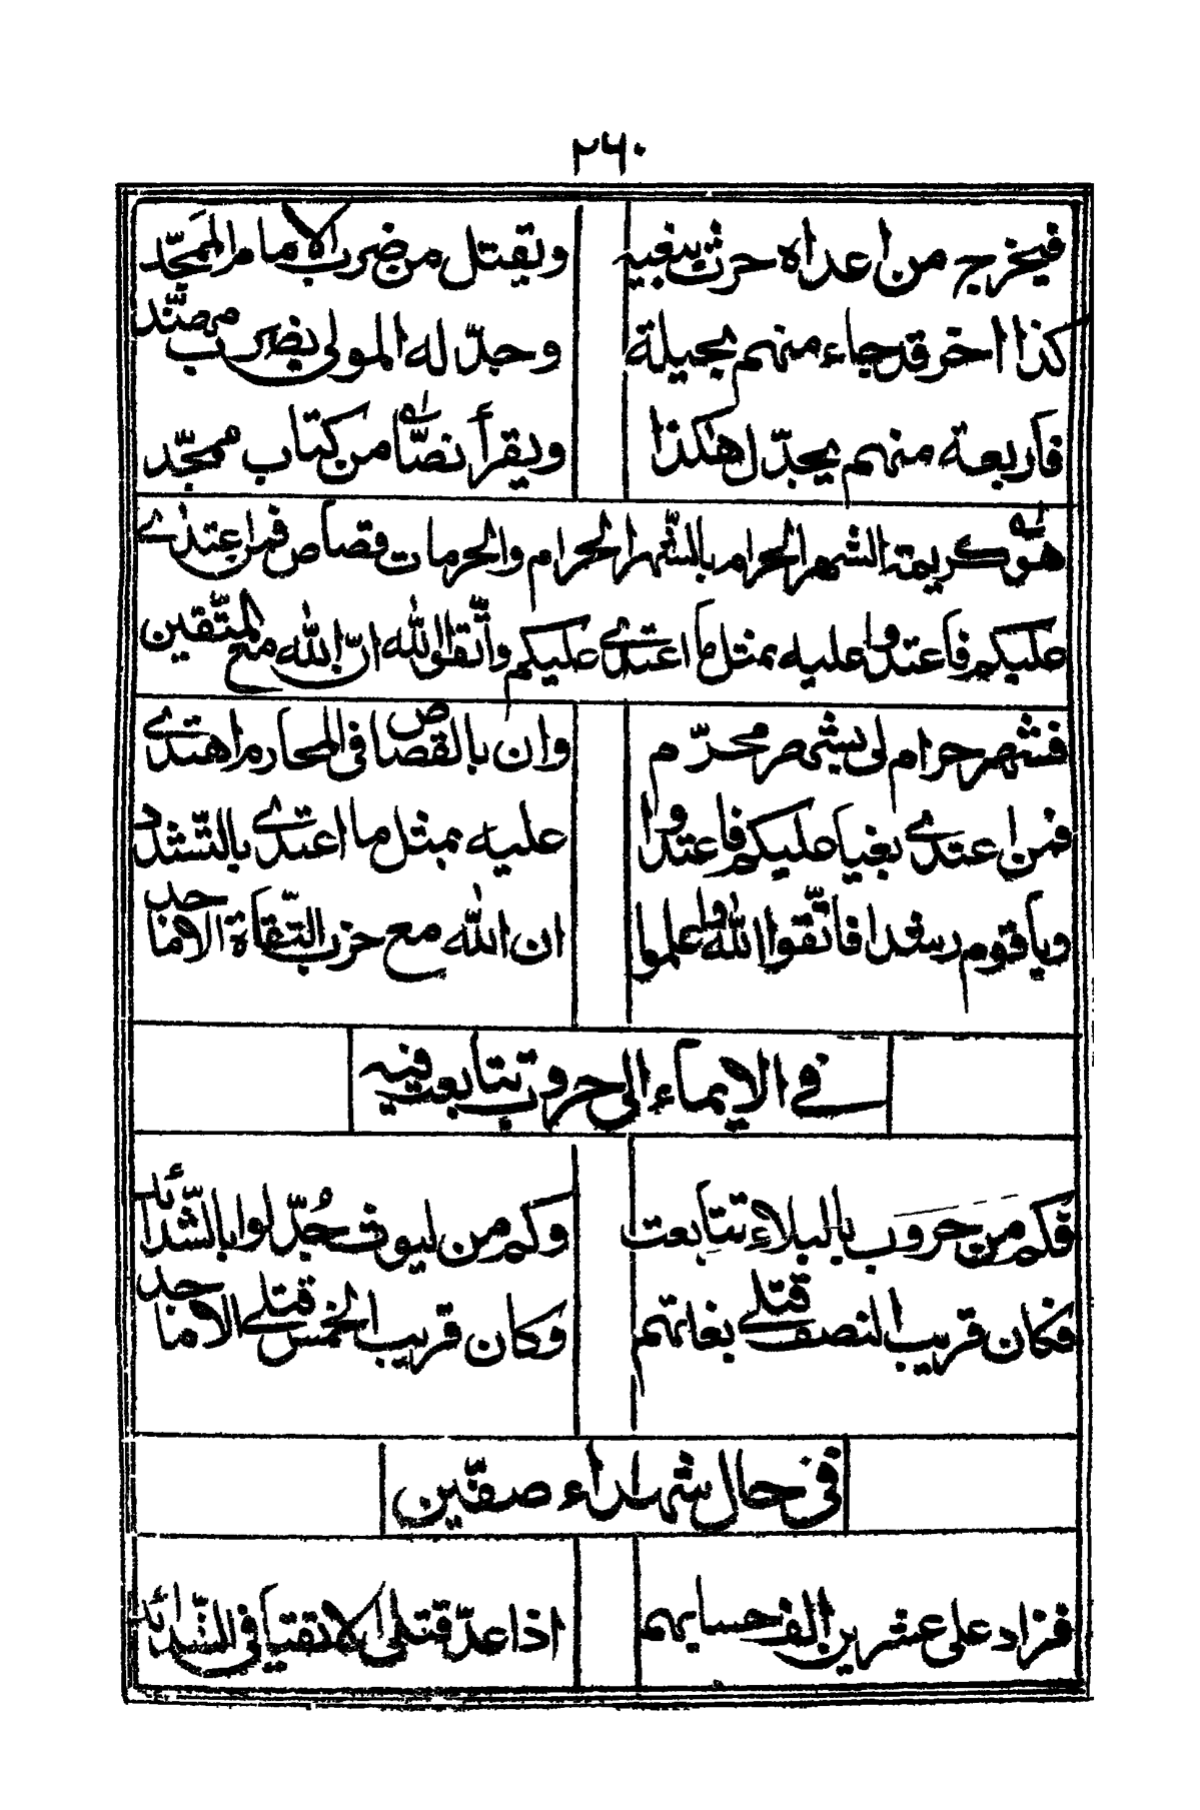 ٢٦٠
فيخرج من اعداه حرث ببغيه ويقتل من ضرب الامام الممجّد
كذا اخر قد جاء منهم بجيلة وجدّ له المولى بضرب مصنّد
فاربعة منهم يجدّل هكذا ويقرأ نصّا من كتاب ممجّد
هو كريمة الشهر الحرام بالشّهر الحرام والحرمات قصاص فمن اعتدى
عليكم فاعتدوا عليه بمثل ما اعتدى عليكم واتّقوا الله انّ الله مع المتّقين
فشهر حرام لى بشهر محرّم وان بالقصاص فى المحارم اهتدى
فمن اعتدى بغيا عليكم فاعتدوا عليه بمثل ما اعتدى بالتّشدد
ويا قوم رشدا فاتّقوا الله واعلموا ان الله مع حزب التّقاة الاماجد
فى الايماء الى حروب تتابعت فيه
فكم من حروب بالبلاء تتابعت وكم من ليوث جُدّلوا بالشّدائد
فكان قريب النصف قتلى بغاتهم وكان قريب الخمس قتلى الاماجد
فى حال شهداء صفّين
فزاد على عشرين الف حسابهم اذا عدّ قتلى الاتقيا فى الشّدائد